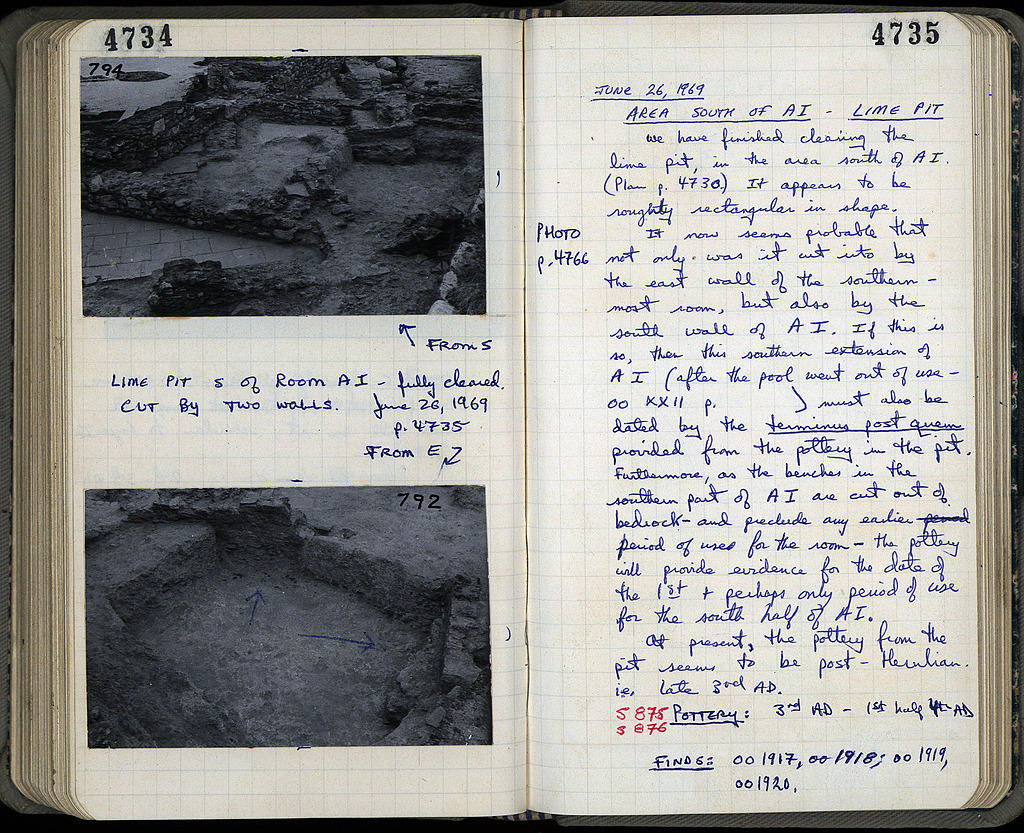 4734
794
FROM S
LIME PIT S OF ROOM A I - fully cleared.
CUT BY TWO WALLS. June 26, 1969
p. 4735
FROM E
792
4735
JUNE 26, 1969
AREA SOUTH OF A I - LIME PIT
we have finished clearing the
lime pit, in the area south of A I.
(Plan p. 4730.) It appears to be
roughly rectangular in shape.
PHOTO
p. 4766
It now seems probable that
not only was it cut into by
the east wall of the southern-
most room, but also by the
south wall of A I. If this is
so, then this southern extension of
A I (after the pool went out of use -
OO XXII p. ) must also be
dated by the terminus post quem
provided from the pottery in the pit.
Furthermore, as the benches in the
southern part of A I are cut out of
bedrock - and preclude any earlier period
period of uses for the room - the pottery
will provide evidence for the date of
the 1st + perhaps only period of use
for the south half of A I.
At present, the pottery from the
pit seems to be post-Herulian.
i.e. late 3rd AD.
S 875 POTTERY: 3rd AD - 1st half 4th AD
S 876
FINDS: OO 1917, OO 1918; OO 1919,
OO 1920.